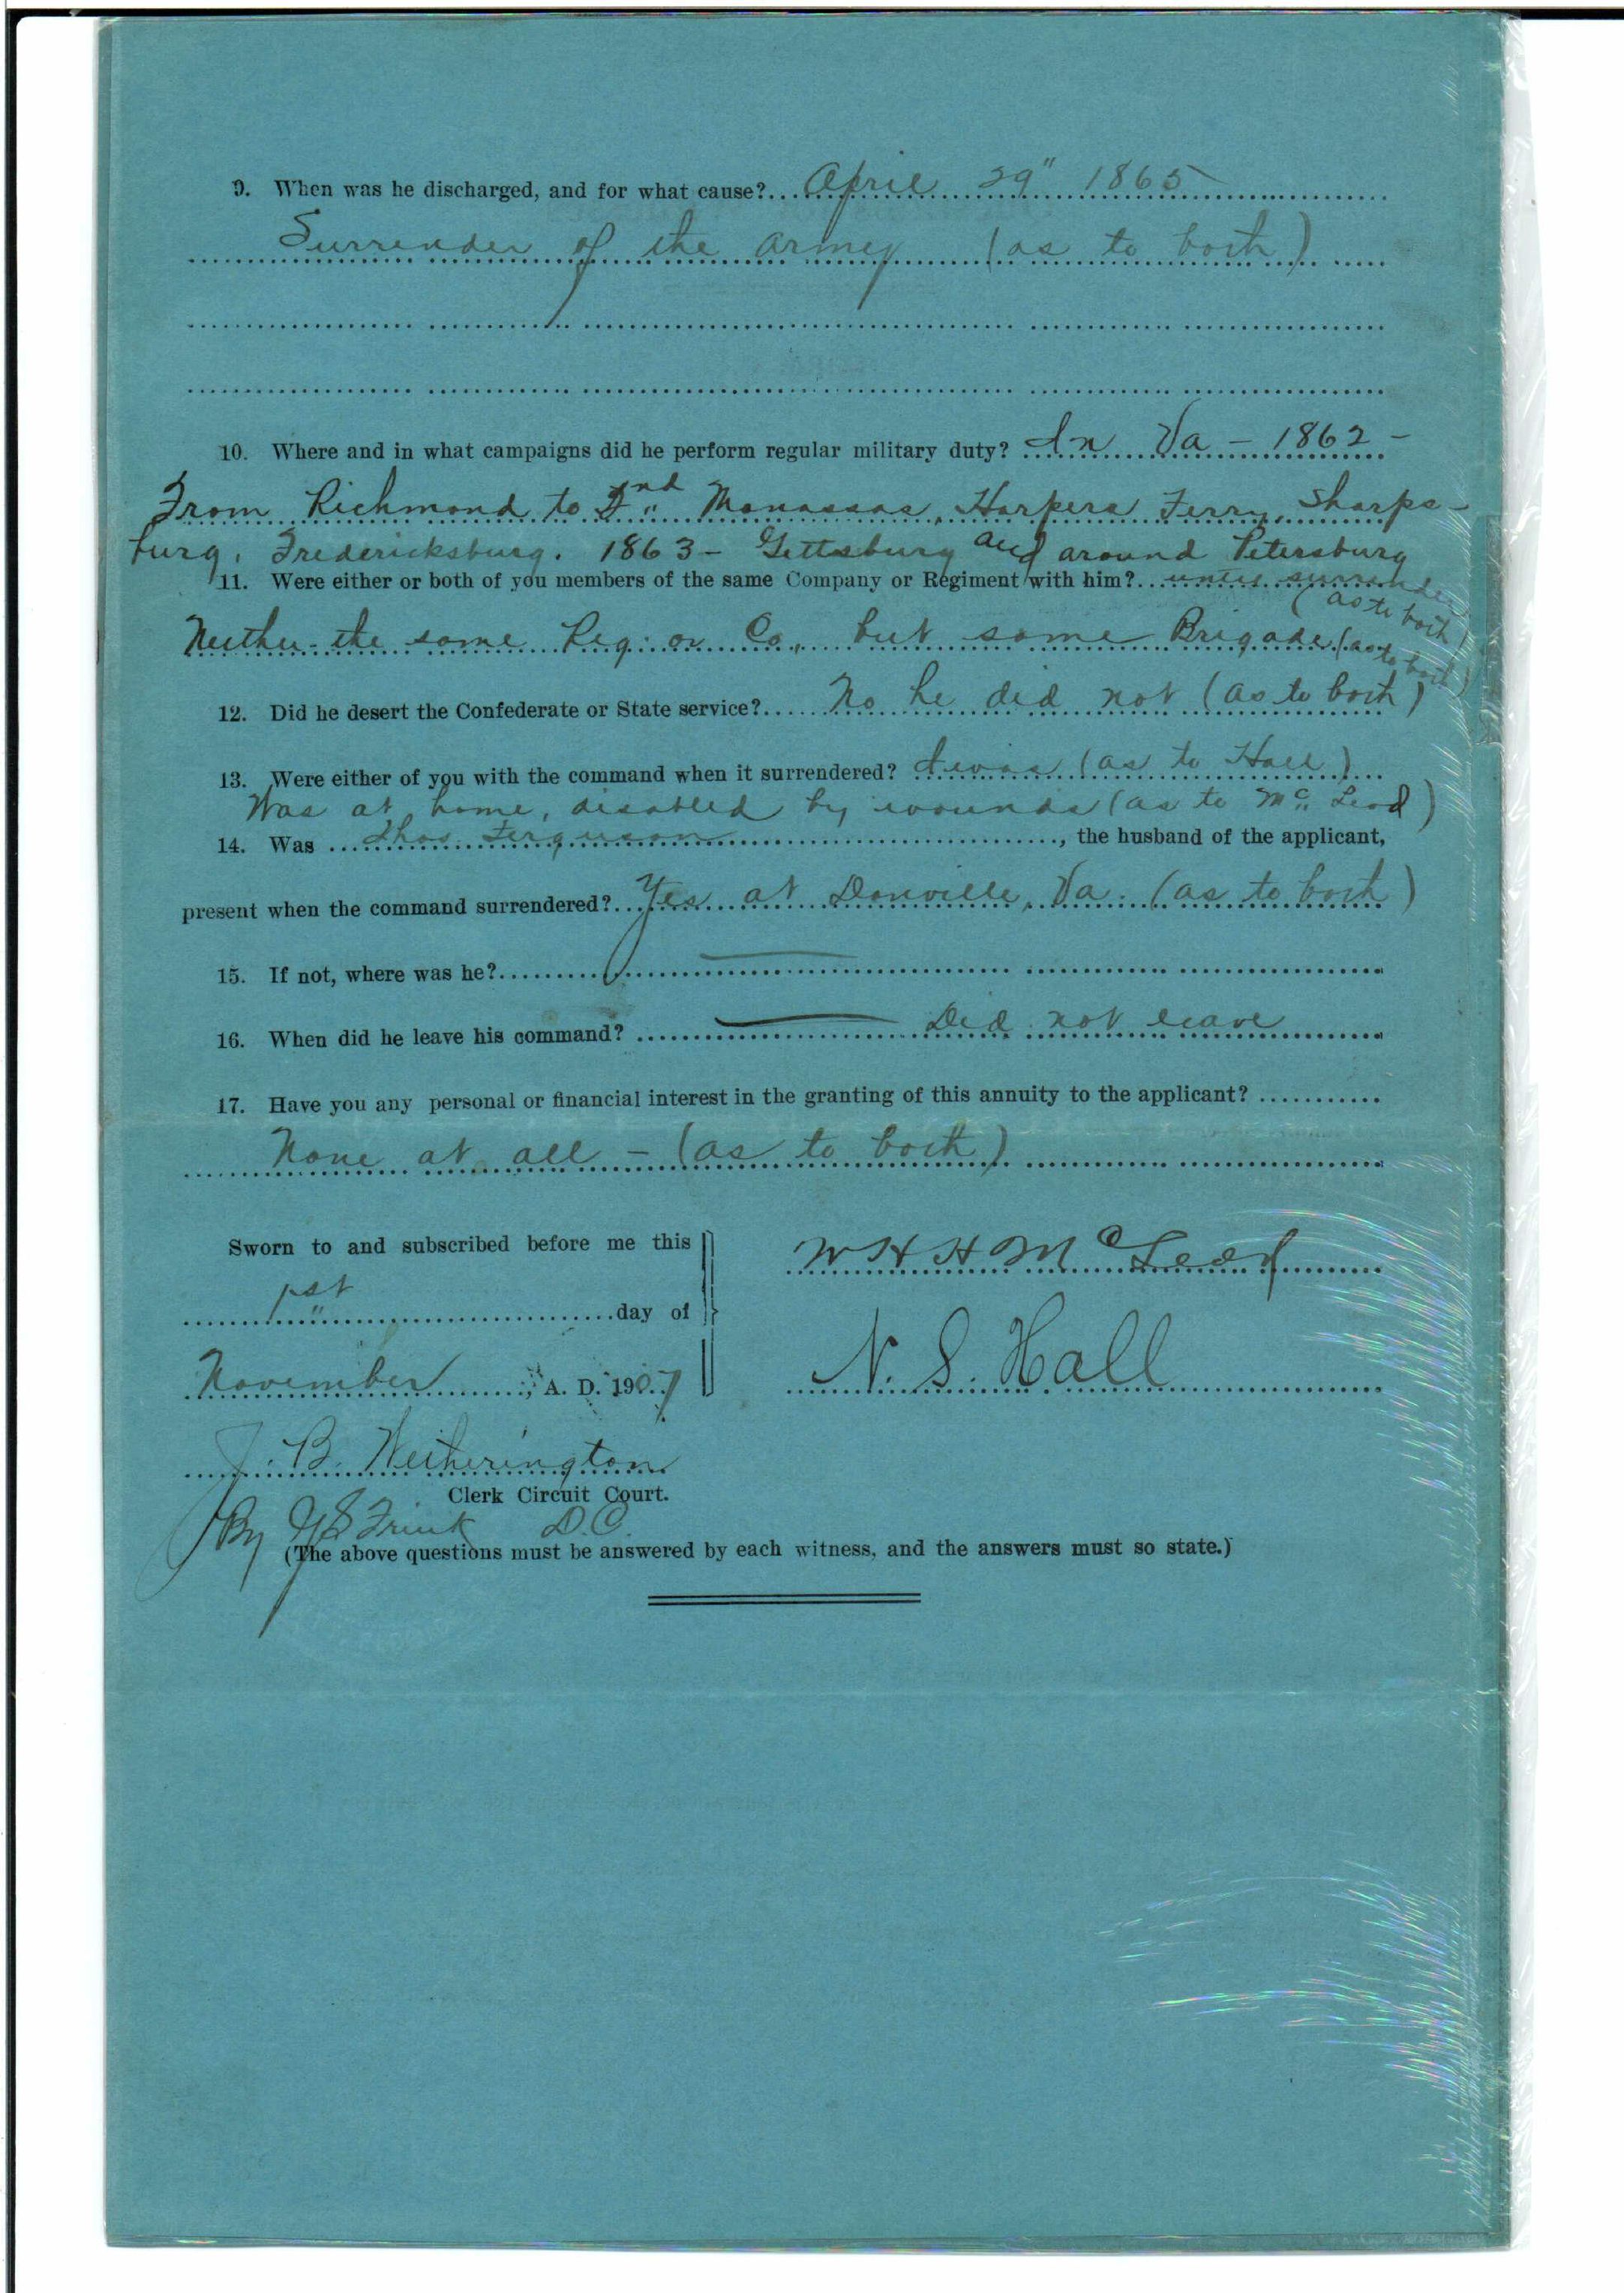 9. When was he discharged, and for what cause? April 29" 1865
Surrender of the army (as to both)
10. Where and in what campaigns did he perform regular military duty? In Va - 1862 -
From Richmond to 2nd Manassas, Harpers Ferry, Sharps-
burg, Fredericksburg. 1863 - Gettsburg and around Petersburg
11. Were either or both of you members of the same Company or Regiment with him? until surrender
(as to both)
Neither the same Reg. or Co., but same Brigade (as to both)
12. Did he desert the Confederate or State service? No he did not (as to both)
13. Were either of you with the command when it surrendered? I was (as to Hall)
Was at home, disabled by wounds (as to McLeod)
14. Was Thos. Ferguson, the husband of the applicant,
present when the command surrendered? Yes at Danville, Va. (as to both)
15. If not, where was he? —
16. When did he leave his command? — Did not leave
17. Have you any personal or financial interest in the granting of this annuity to the applicant?
None at all - (as to both)
Sworn to and subscribed before me this
1st day of
November, A. D. 1907
W H H McLeod
N. S. Hall
J. B. Wetherington
Clerk Circuit Court.
By Frink D.C.
(The above questions must be answered by each witness, and the answers must so state.)